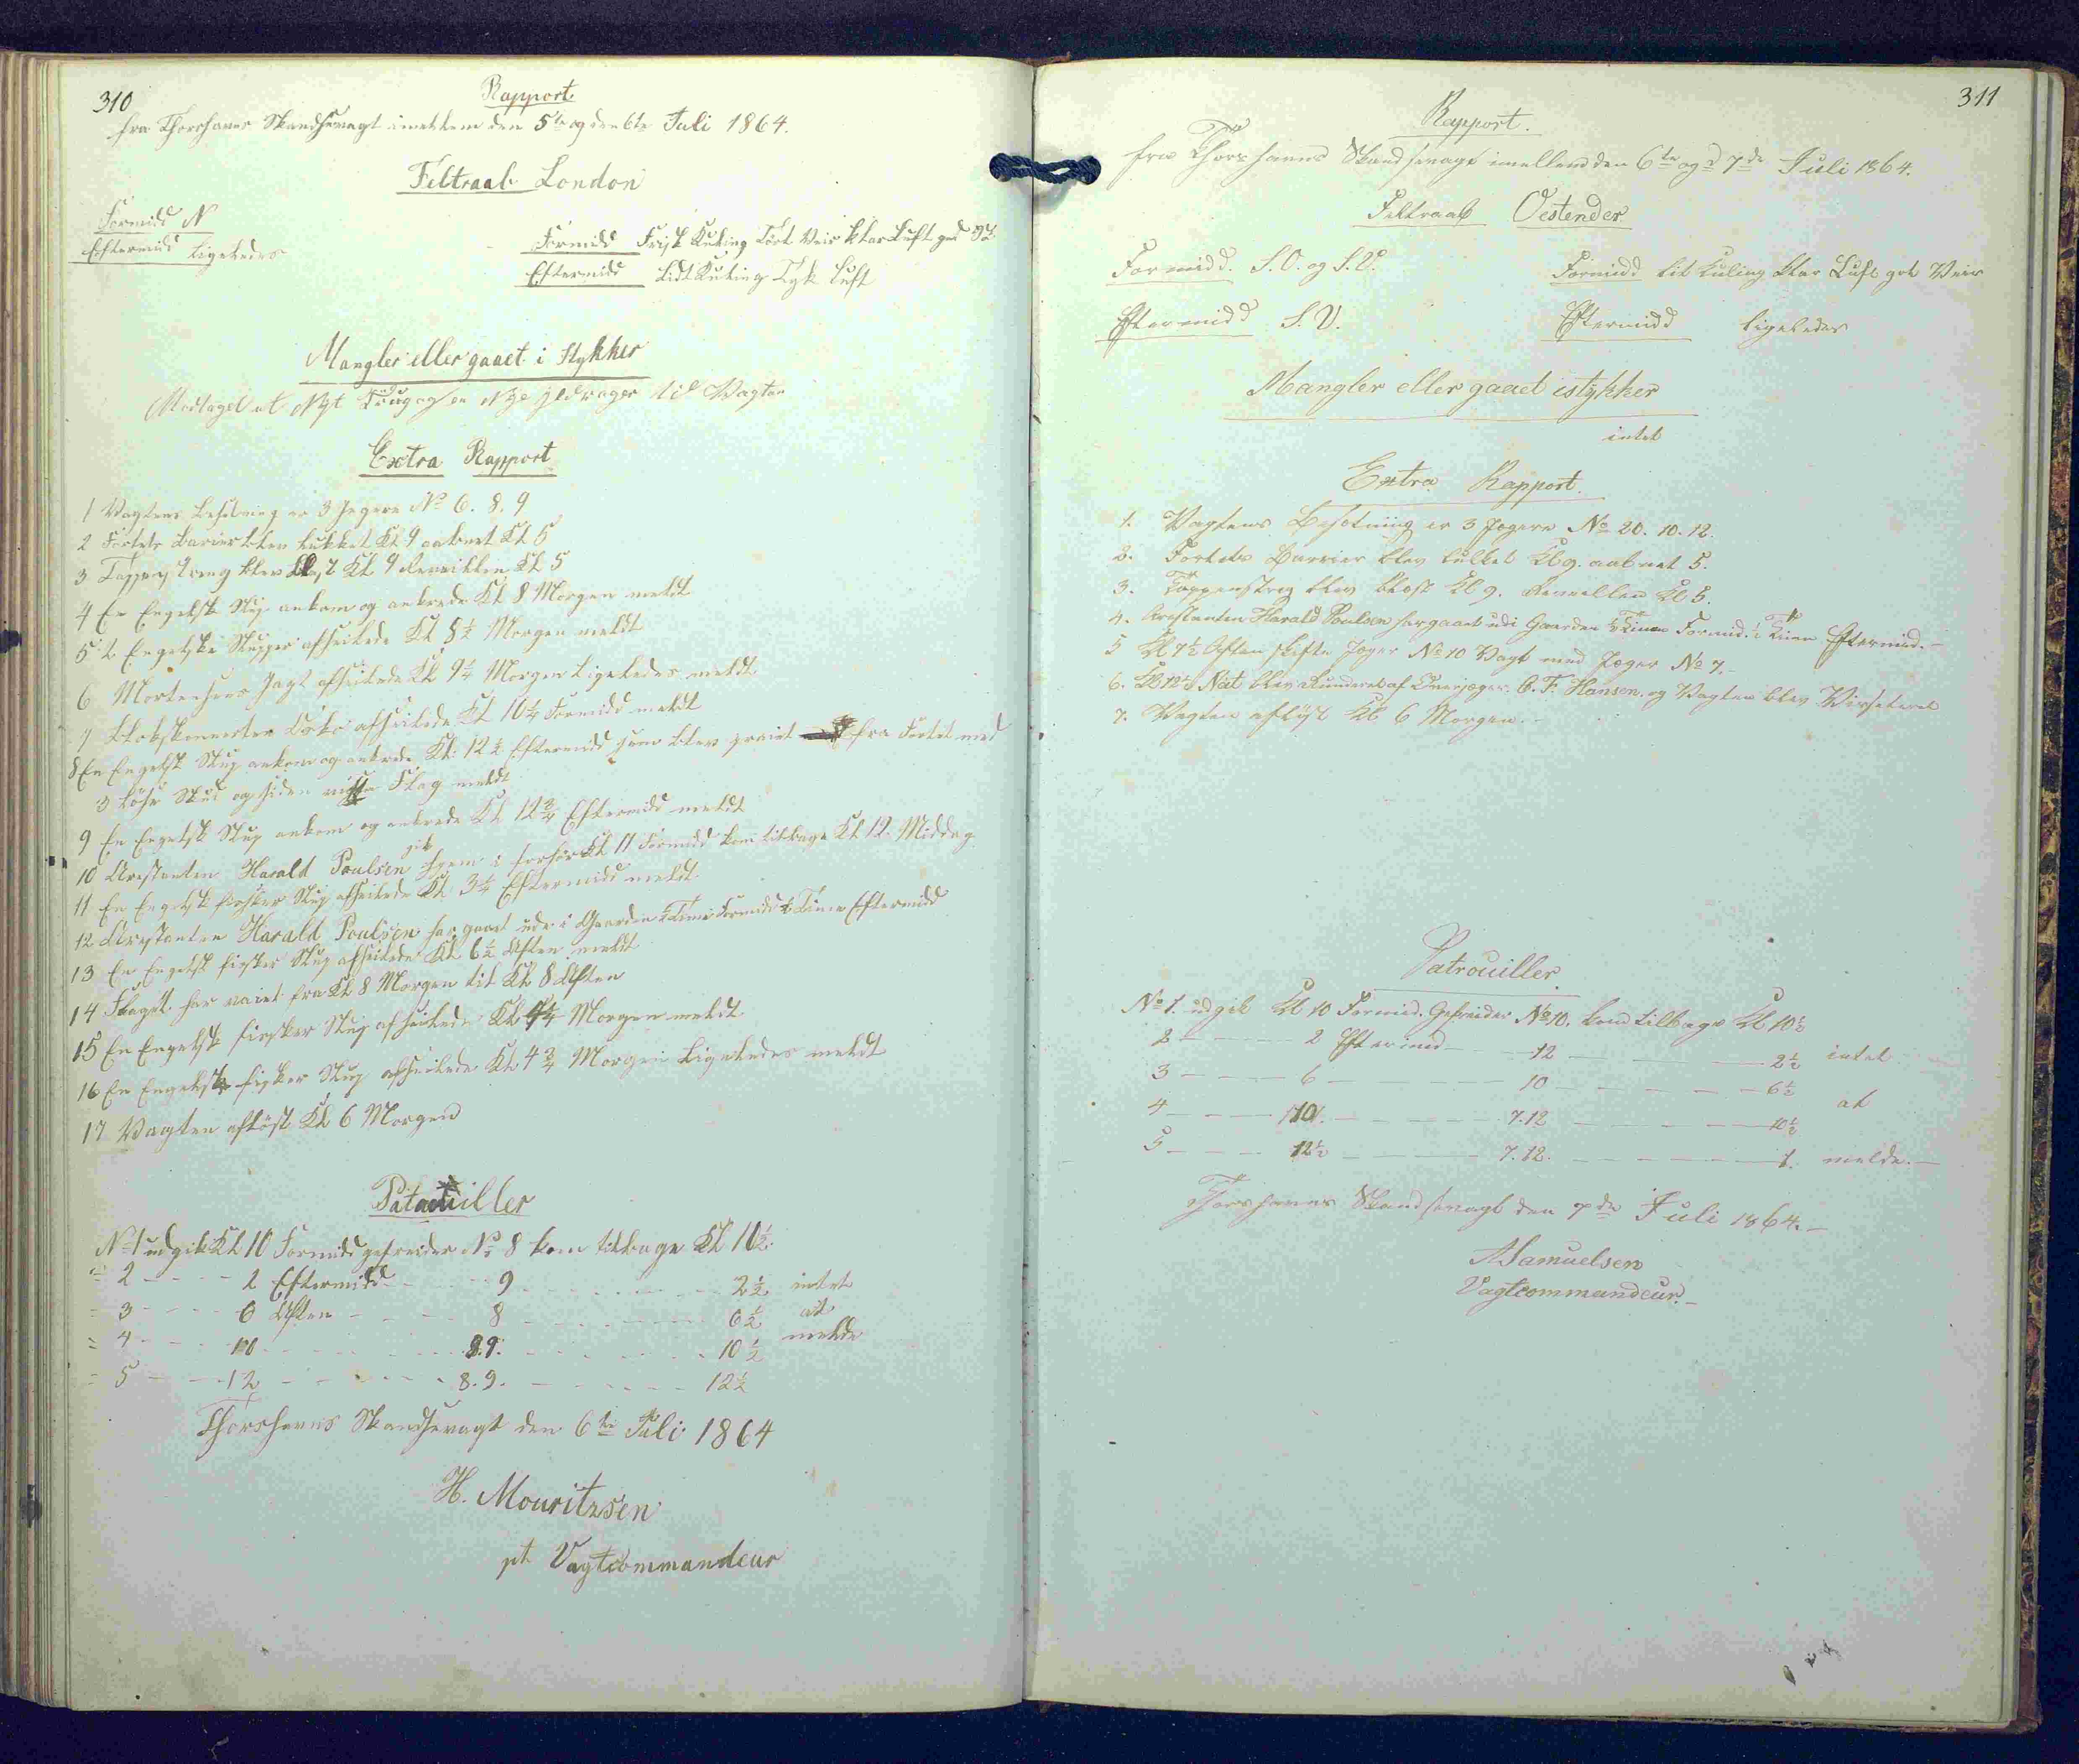 310
Rapport
fra Thorshavns Skandsevagt imellem den 5te og den 6te Juli 1864.
Feltraab London
Formidd N
Eftermidd Ligeledes
Formidd Frisk Kuling Tört Veir klar Luft
Eftermidd Lidt Kuling Tyk Luft
Mangler eller gaaet i Stykker
Modtaget et Nyt og en Nye til Vagten
Extra Rapport
1 Vagtens Besetning er 3 Jegere No 6. 8. 9
2 Fortets Barier blev lukket Kl 9 aabnet Kl 5
3 Tappenstreg blev blest Kl 9 Reveillen Kl 5
4 En Engelsk Slup ankom og ankrede Kl 8 Morgen meldt
5 2 Engelske Slupper afseilede Kl 8½ Morgen meldt
6 Mortensens Jagt afseilede Kl 9¼ Morgen Ligeledes meldt
7 afseilede Kl 10¼ Formidd meldt
8 En Engelsk Slup ankom og ankrede Kl. 12½ Eftermidd som blev praiet fra Fortet med
3 löse Skud og siden viste Flag meldt
9 En Engelsk Slup ankom og ankrede Kl 12¾ Eftermidd meldt
10 Arestanten Harald Poulsen gik frem i forhör Kl 11 Formidd kom tilbage Kl 12. Middag
11 En Engelsk fisker Slup afseilede Kl. 3¼ Eftermidd meldt
12 Arestanten Harald Poulsen har gaaet ude i Gaarden ½ Time Formidd ½ Time Eftermidd
13 En Engelsk fisker Slup afseilede Kl 6½ Aften meldt
14 Flaget har vaiet fra Kl 8 Morgen til Kl 8 Aften
15 En Engelsk fisker Slup afseilede Kl 4¼ Morgen meldt
16 En Engelsk fisker Slup afseilede Kl. 4¾ Morgen Ligeledes meldt
17 Vagten aflöst Kl 6 Morgen
Patrouiller
No 1 udgik Kl 10 Formidd gefreider No 8 kom tilbage Kl 10½.
2 - - - - 2 Eftermidd - - - 9 - - - - 2½ intet
3 - - - - 6 Aften - - - - 8 - - - - 6½ at
4 - - - - 10 - - - - 8.9. - - - - 10½ melde
5 - - - 12 - - - - 8.9. - - - - 12½
Thorshavns Skandsevagt den 6te Juli 1864
H. Mouritzsen
pt Vagtcommandeur
311
Rapport.
fra Thorshavns Skandsevagt imellem den 6te og d 7de Juli 1864.
Feltraab Oestender
Formidd. S.O. og S.V.
Formidd Lit Kuling klar Luft got Veir
Eftermidd S.V.
Eftermidd ligeledes
Mangler eller gaaet istykker
intet
Extra Rapport.
1. Vagtens Besetning er 3 Jægere No 20. 10. 12.
2. Fortets Barrier blev lukket Kl 9. aabnet 5.
3. Tappenstreg blev blæst Kl 9. Reveillen Kl 5.
4. Arestanten Harald Poulsen har gaaet udi Gaarden ½ Time Formid. ½ Time Eftermid. -
5 Kl 7½ Aften skifte Jæger No 10 Vagt med Jæger No 7. -
6. Kl 12½ Nat blev Runderet af Overjæger C. F. Hansen. og Vagten blev Visiteret
7. Vagten aflöst Kl 6 Morgen. -
Patrouiller.
No 1. udgik Kl 10 Formid. Gefreider No 10. kom tilbage Kl 10½
2 - - - - 2 Eftermid - - - 12 - - - - 2½ intet
3 - - - - 6 - - - - 10 - - - - 6½
4 - - - - 10. - - - - 7.12 - - - - 10½ at
5 - - - - 12½ - - - - 7.12. - - - - 1. melde. -
Thorshavns Skandsevagt den 7de Juli 1864. -
A Samuelsen
Vagtcommandeur. -